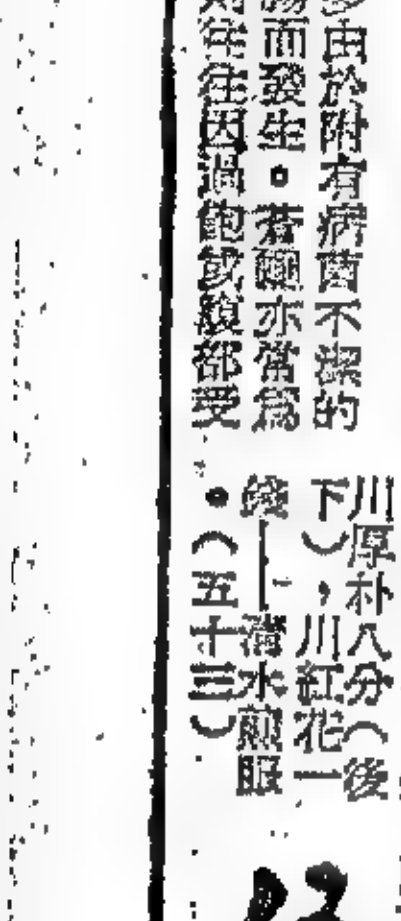 由於附有病菌不潔的
而發生。蒼蠅亦常為
往往因過飽或腹部受
川厚朴八分（後
下），川紅花一
錢——清水煎服
。（五十三）